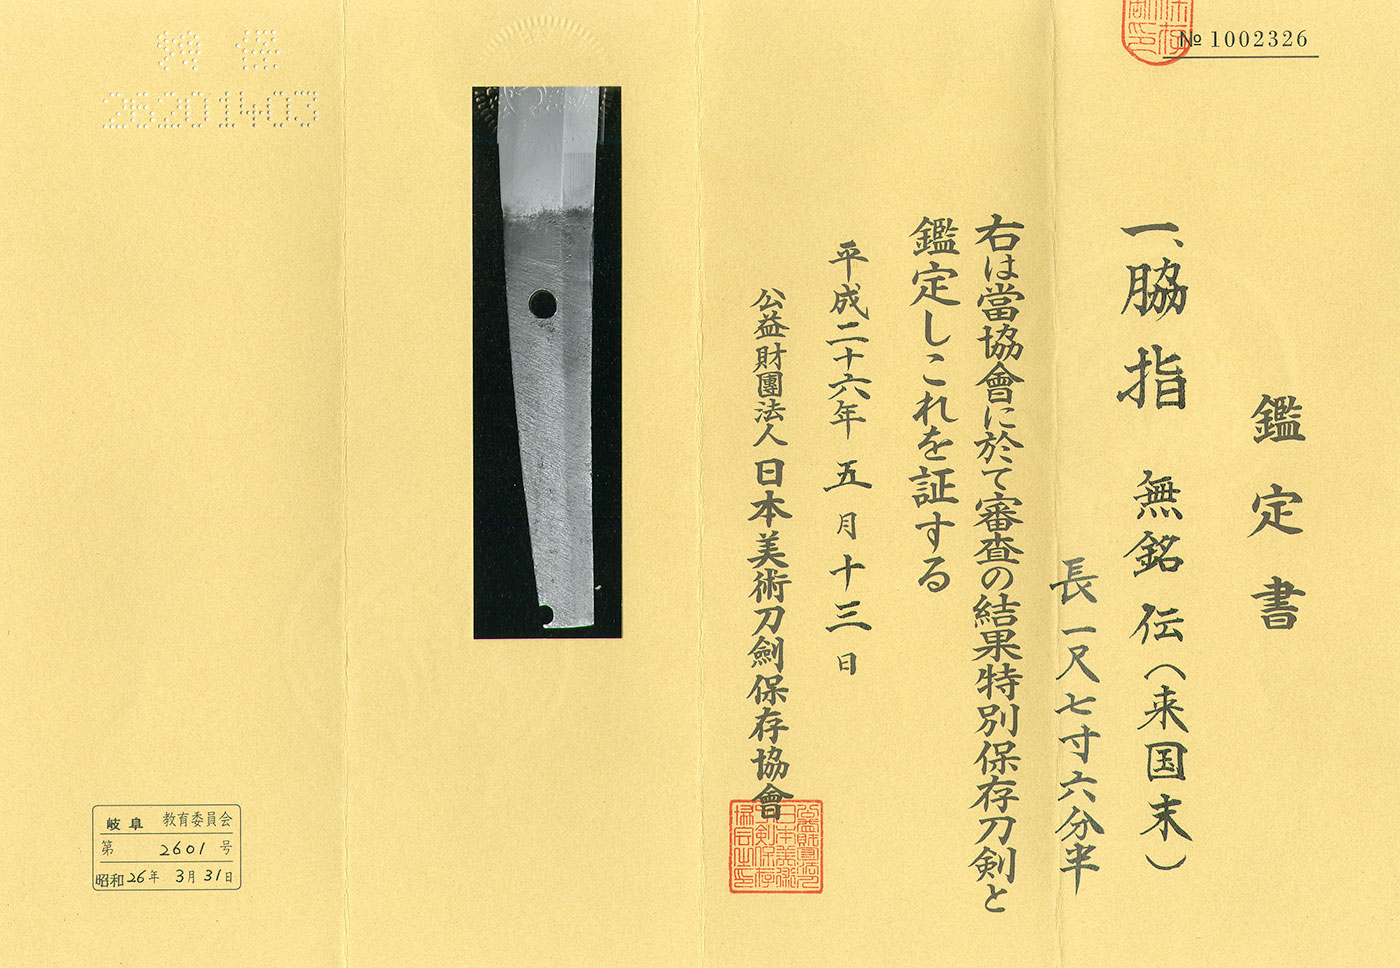 № 1002326
鑑定書
一、脇指 無銘 伝(来国末)
長一尺七寸六分半
右は當協會に於て審査の結果特別保存刀剣と
鑑定しこれを証する
平成二十六年五月十三日
公益財團法人日本美術刀劍保存協會
特保
26201403
岐阜 教育委員会
第 2601 号
昭和26年3月31日